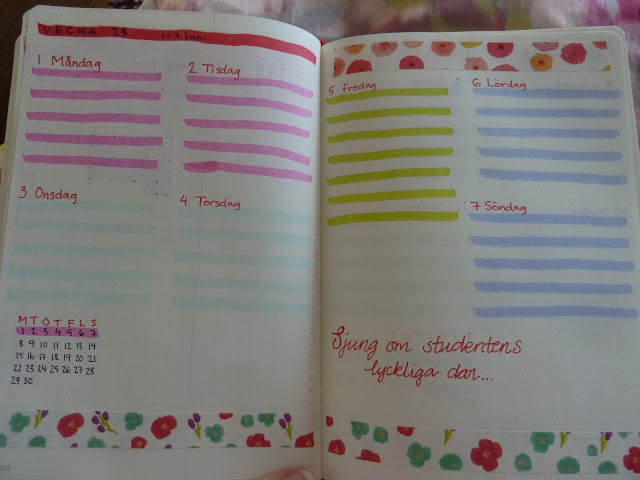 VECKA 23 1-7 juni
1 Måndag
2 Tisdag
3 Onsdag
4 Torsdag
M T O T F L S
1 2 3 4 5 6 7
8 9 10 11 12 13 14
15 16 17 18 19 20 21
22 23 24 25 26 27 28
29 30
5 Fredag
6 Lördag
7 Söndag
Sjung om studentens
lyckliga dar...